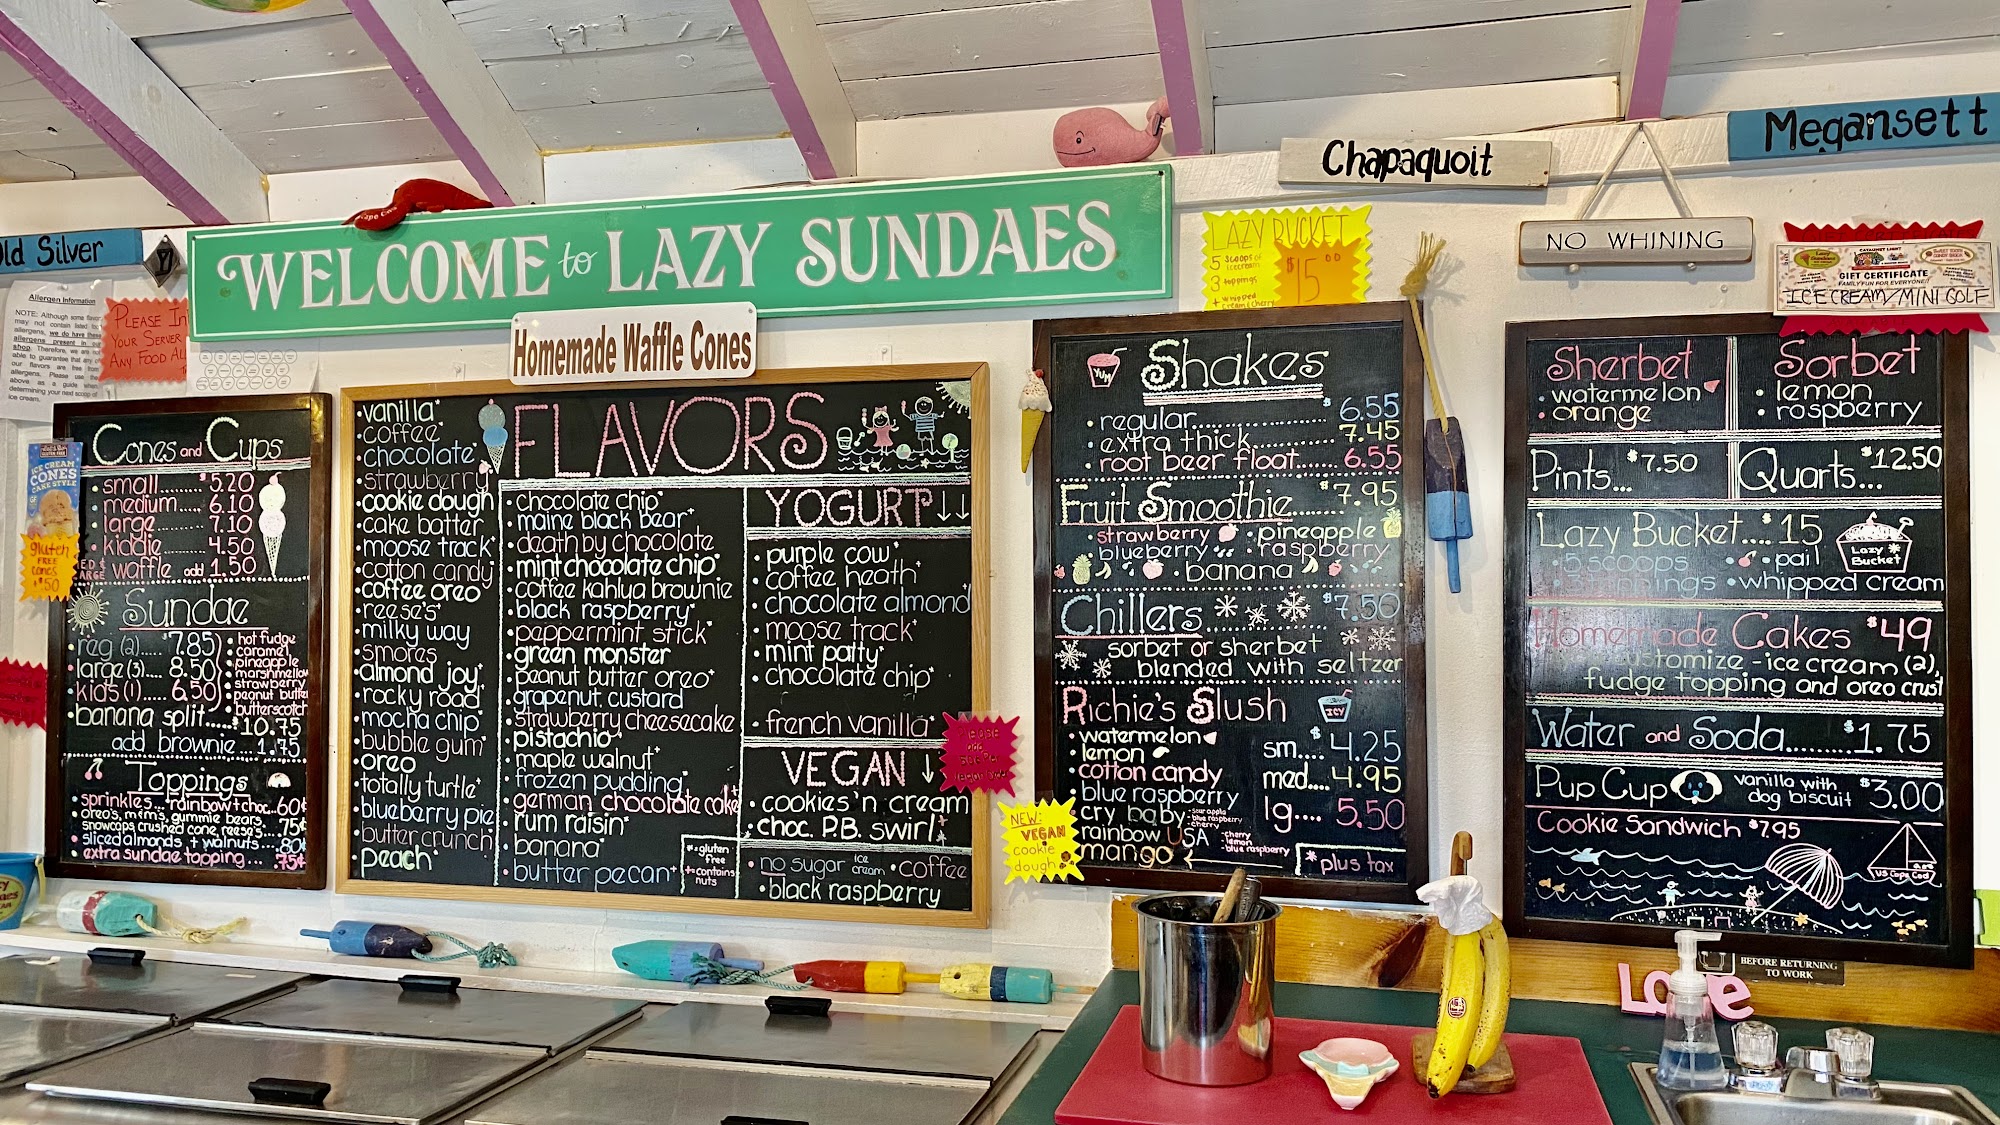 Old Silver
WELCOME to LAZY SUNDAES
Homemade Waffle Cones
Chapaquoit
Megansett
NO WHINING
Allergen Information
NOTE: Although some flavors
may not contain listed
allergens, we do have these
allergens present in our
shop. Therefore, we are not
able to guarantee that any of
our flavors are free from
allergens. Please use the
above as a guide when
determining your next scoop of
ice cream.
PLEASE IN
YOUR SERVER
ANY FOOD ALL
ICE CREAM
CONES
CAKE STYLE
gluten
FREE
cones
$.50
Cones and Cups
• small......... $5.20
• medium..... 6.10
• large.......... 7.10
• kiddie.......... 4.50
waffle add 1.50
Sundae
• reg (2)..... $7.85
• large (3).... 8.50
• kids (1)...... 6.50
• hot fudge
• caramel
• pineapple
• marshmallow
• strawberry
• peanut butter
• butterscotch
• banana split..... $10.75
add brownie... 1.75
Toppings
• sprinkles... rainbow + choc... 60¢
• oreo's, m+m's, gummie bears,
snowcaps, crushed cone, reese's.... 75¢
• sliced almonds + walnuts.. 80¢
• extra sundae topping ... 75¢
FLAVORS
• vanilla*
• coffee*
• chocolate*
• strawberry*
• cookie dough
• cake batter
• moose track*
• cotton candy
• coffee oreo
• reese's*
• milky way
• smores
• almond joy
• rocky road
• mocha chip*
• bubble gum*
• oreo
• totally turtle
• blueberry pie
• butter crunch*
• peach*
• chocolate chip*
• maine black bear*
• death by chocolate
• mint chocolate chip*
• coffee kahlua brownie
• black raspberry*
• peppermint stick*
• green monster
• peanut butter oreo+
• grapenut custard
• strawberry cheesecake
• pistachio
• maple walnut+
• frozen pudding
• german chocolate cake
• rum raisin*
• banana*
• butter pecan+
* = gluten
free
+ = contains
nuts
YOGURT ↓↓
• purple cow*
• coffee heath*
• chocolate almond
• moose track*
• mint patty*
• chocolate chip*
• french vanilla*
VEGAN ↓
• cookies 'n cream
• choc. P.B. swirl
• no sugar ice cream • coffee
• black raspberry
NEW:
VEGAN
cookie
dough
LAZY BUCKET
5 scoops of
icecream
3 toppings
+ whipped
cream & cherry
$15.00
YUM
Shakes
• regular..................... $6.55
• extra thick................ 7.45
• root beer float....... 6.55
Fruit Smoothie....... $7.95
• strawberry • pineapple
• blueberry • raspberry
• banana
Chillers............... $7.50
sorbet or sherbet
blended with seltzer
Richie's Slush
ICY
• watermelon
• lemon
• cotton candy
• blue raspberry
• cry baby -sour apple
-blue raspberry
-cherry
• rainbow USA -cherry
-lemon
-blue raspberry
• mango
sm.... $4.25
med.... 4.95
lg..... 5.50
* plus tax
GIFT CERTIFICATE
FAMILY FUN FOR EVERYONE!!
ICE CREAM/MINI GOLF
Sherbet
• watermelon
• orange
Sorbet
• lemon
• raspberry
Pints... $7.50
Quarts... $12.50
Lazy Bucket.... $15
• 5 scoops • pail
• 3 toppings • whipped cream
Lazy
Bucket
Homemade Cakes $49
customize - ice cream (2),
fudge topping and oreo crust
Water and Soda........ $1.75
Pup Cup vanilla with
dog biscuit $3.00
Cookie Sandwich $7.95
US Cape Cod
BEFORE RETURNING
TO WORK
Love